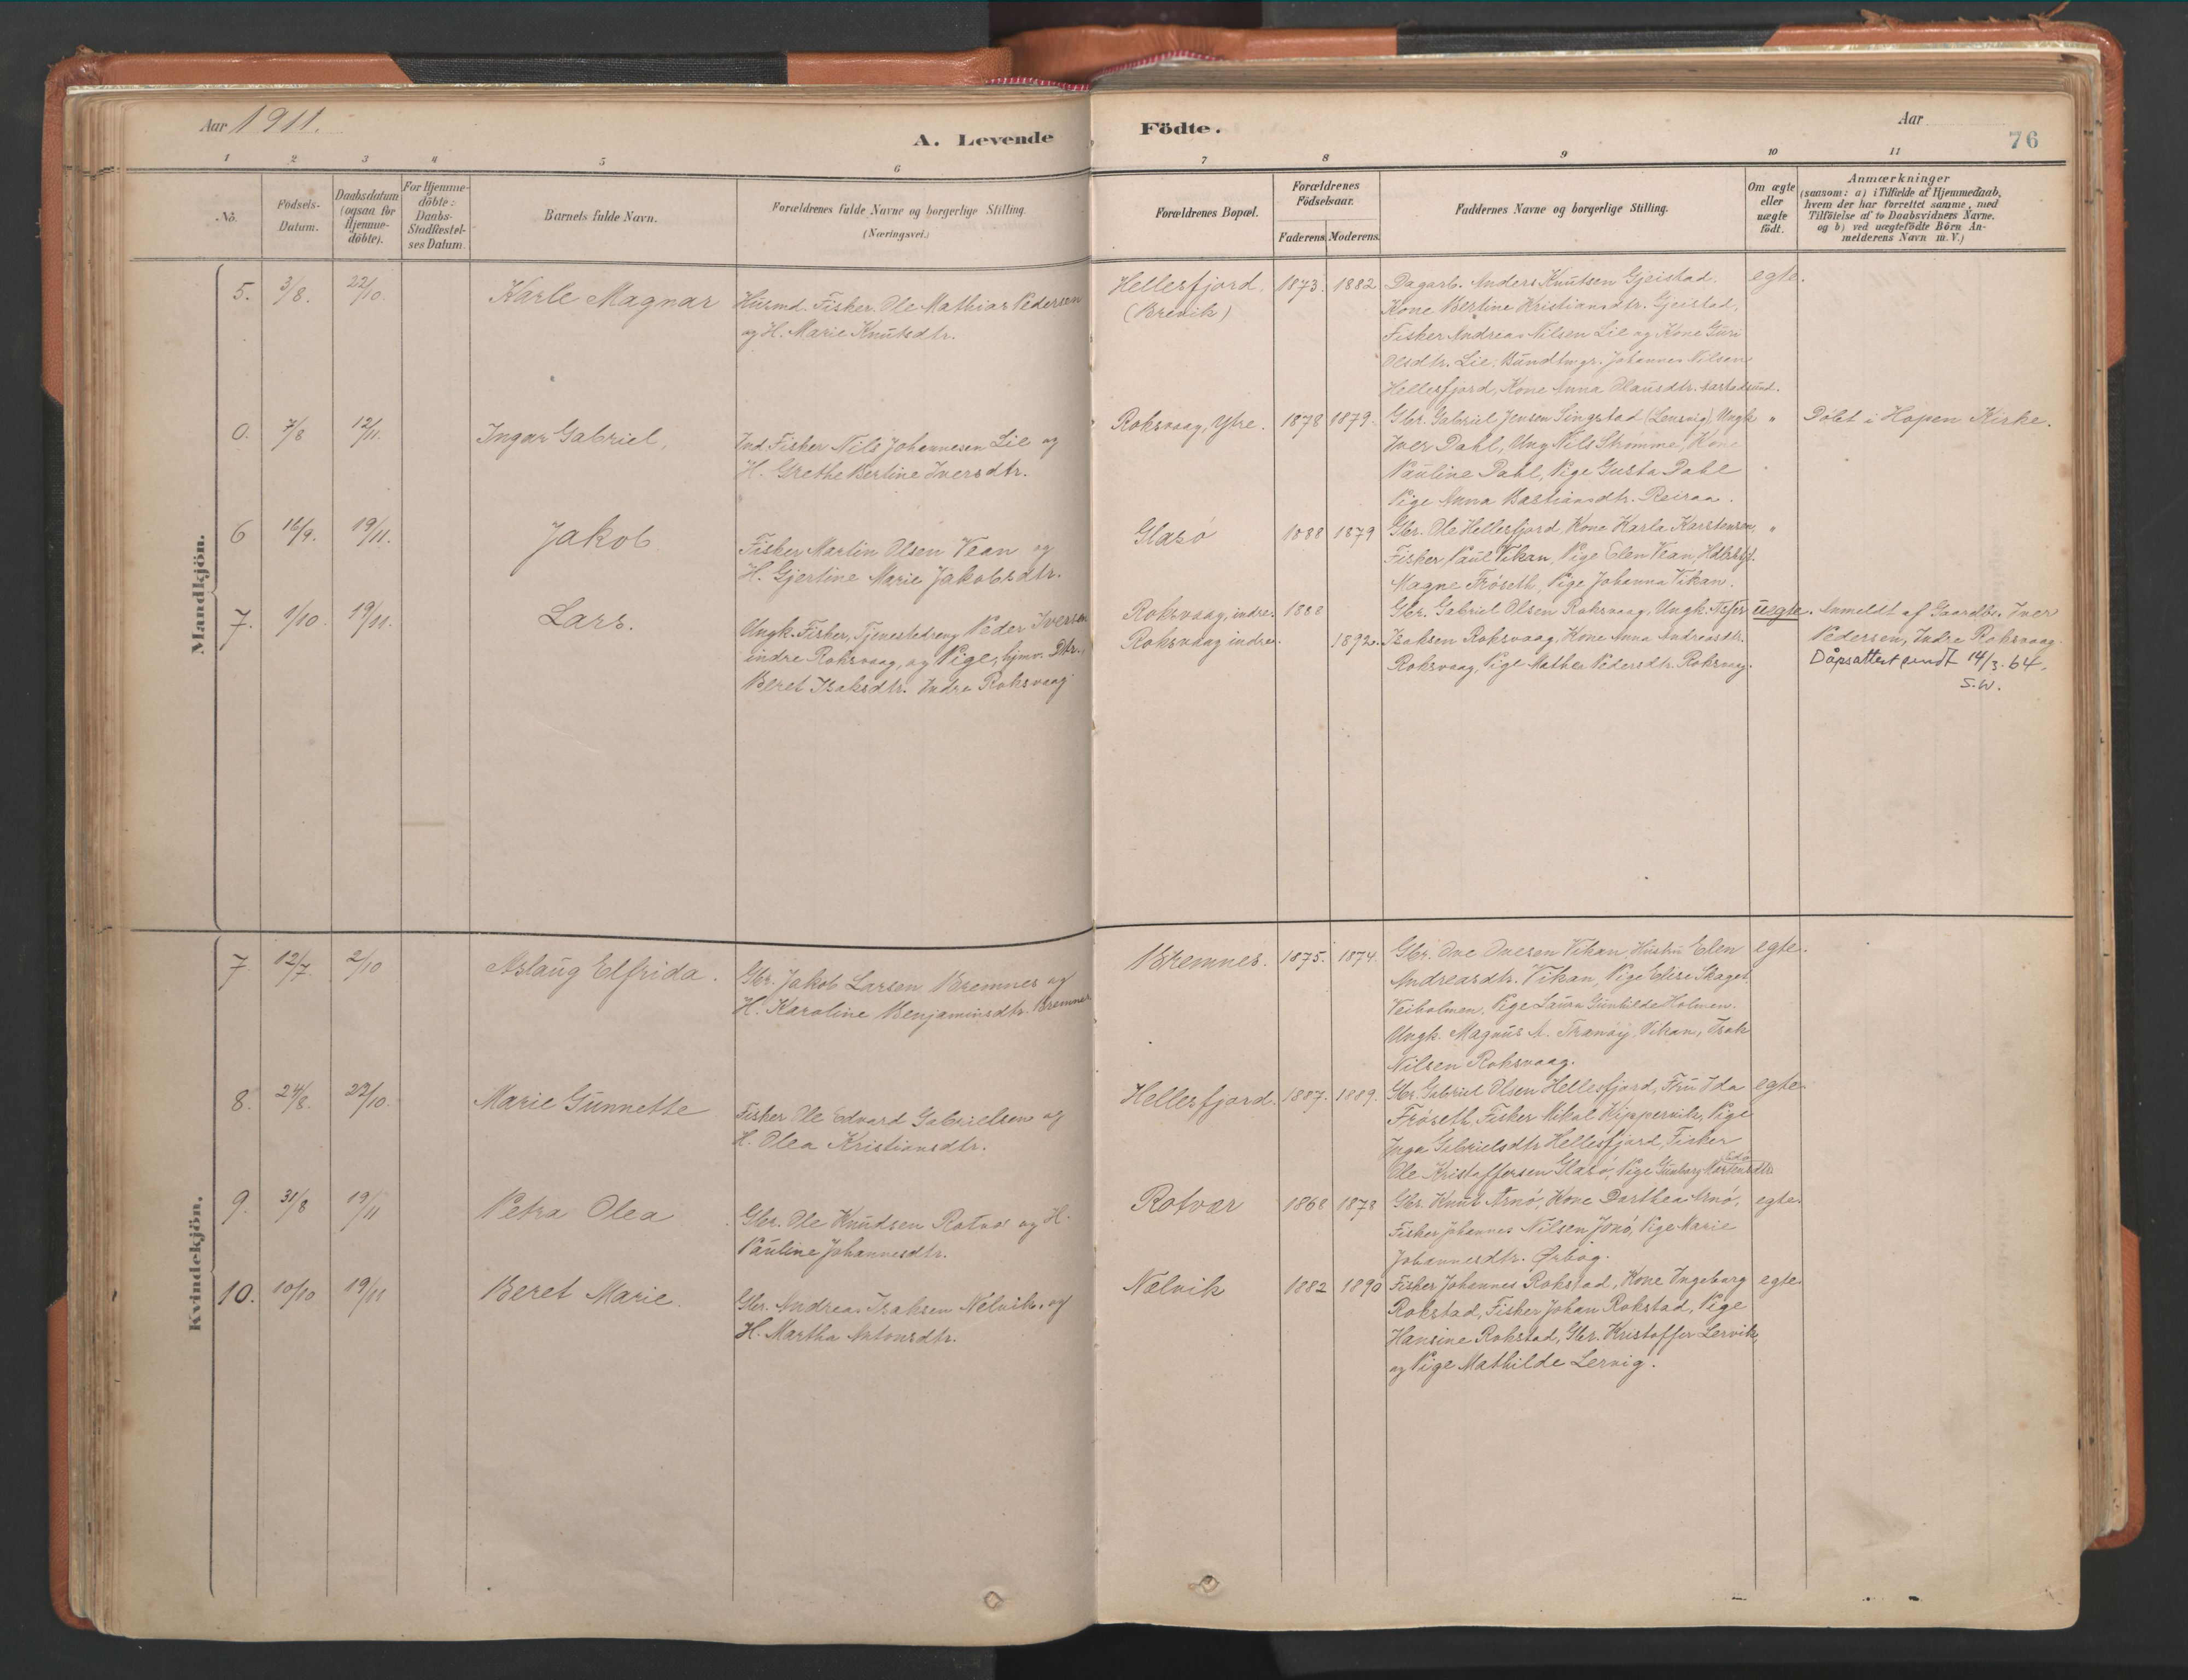 Aar 1911.
A. Levende
Födte.
Aar
76
1 2 3 4 5 6 7 8 9 10 11
No.
Födsels-
Datum.
Daabsdatum
(ogsaa for
Hjemme-
döbte).
For Hjemme-
döbte:
Daabs-
Stadfæstel-
ses Datum.
Barnets fulde Navn.
Forældrenes fulde Navne og borgerlige Stilling.
(Næringsvei.)
Forældrenes Bopæl.
Forældrenes
Födselsaar.
Faderens. Moderens.
Faddernes Navne og borgerlige Stilling.
Om ægte
eller
uægte
födt.
Anmærkninger
(saasom: a) i Tilfælde af Hjemmedaab,
hvem der har forrettet samme, med
Tilföielse af to Daabsvidners Navne.
og b) ved uægtefödte Börn An-
melderens Navn m. V.)
Mandkjön.
5. 3/8. 22/10. Karle Magnar
Husmd. Fisker Ole Mathias Pedersen
og H. Marie Knutsdtr.
Hellesfjord.
(Brevik)
1873. 1882.
Dagarb. Anders Knutsen Gjeistad,
Kone Bertine Kristiansdtr. Gjeistad,
Fisker Andreas Nilsen Lie og Kone Guri
Olsdtr. Lie, Johannes Nilsen
Hellesfjord, Kone Anna Olausdtr.
egte.
0. 7/8 12/11. Ingar Gabriel.
Ind. Fisker Nils Johannesen Lie og
H. Grethe Bertine Iversdtr.
Roksvaag, Ytre. 1878 1879.
Gbr. Gabriel Jensen Singstad (Lensvig) Ungk.
Iver Dahl, Ung Nils Strømme, Kone
Pauline Dahl, Pige Gusta Dahl
Pige Anna Bastiansdtr. Reiraa.
"
Döbt i Hopen Kirke.
6 16/9. 19/11. Jakob
Fisker Martin Olsen Vean og
H. Gjertine Marie Jakobsdtr.
Glasö 1888 1879
Gbr. Ole Hellesfjord, Kone Karla Karstensen,
Fisker Paul Vikan, Pige Elen Vean
Magne Fröseth, Pige Johanna Vikan.
"
7. 1/10. 19/11. Lars.
Ungk. Fisker, Tjenestedreng Peder Iversen
indre Roksvaag, og Pige, hjmv. Dtr.,
Beret Isaksdtr. Indre Roksvaag
Roksvaag, indre. 1888
Roksvaag indre. 1892.
Gbr. Gabriel Olsen Roksvaag, Ungk. Fisker
Isaksen Roksvaag, Kone Anna Andreasdtr.
Roksvaag, Pige Mathea Pedersdtr. Roksvaag.
uegte.
Anmeldt af Gaardbr. Iver
Pedersen, Indre Roksvaag.
Dåpsattest sendt 14/3. 64.
S.W.
Kvindekjön.
7 12/7. 2/10 Aslaug Elfrida.
Gbr. Jakob Larsen Bremnes og
H. Karoline Benjaminsdtr. Bremnes
Bremnes. 1875. 1874.
Gbr. Ove Ovesen Vikan, Hustru Elen
Andreasdtr. Vikan, Pige Elise Skaget,
Veiholmen, Pige Laura Gunhilde Holmen.
Ungk. Magnus A. Tranøy, Vikan, Isak
Nilsen Roksvaag.
egte.
8. 24/8. 22/10. Marie Gunnette
Fisker Ole Edvard Gabrielsen og
H. Olea Kristiansdtr.
Hellesfjord. 1887. 1889.
Gbr. Gabriel Olsen Hellesfjord, Fru Ida
Fröseth, Fisker Mikal Kippervik, Pige
Inga Gabrielsdtr. Hellesfjord, Fisker
Ole Kristoffersen Glasö, Pige Gunborg Mortensdtr.
egte.
9. 31/8 19/11 Petra Olea
Gbr. Ole Knudsen Rotvær og H.
Pauline Johannesdtr.
Rotvær 1868 1878
Gbr. Knut Arnö, Kone Dorthea Arnö,
Fisker Johannes Nilsen Jonö, Pige Marie
Johannesdtr. Ørbog.
egte.
10. 10/10 19/11 Beret Marie.
Gbr. Andreas Isaksen Nelvik, og
H. Martha Antonsdtr.
Nelvik 1882 1890
Fisker Johannes Rokstad, Kone Ingeborg
Rokstad, Fisker Johan Rokstad, Pige
Hansine Rokstad, Gbr. Kristoffer Lervik,
og Pige Mathilde Lervig.
egte.